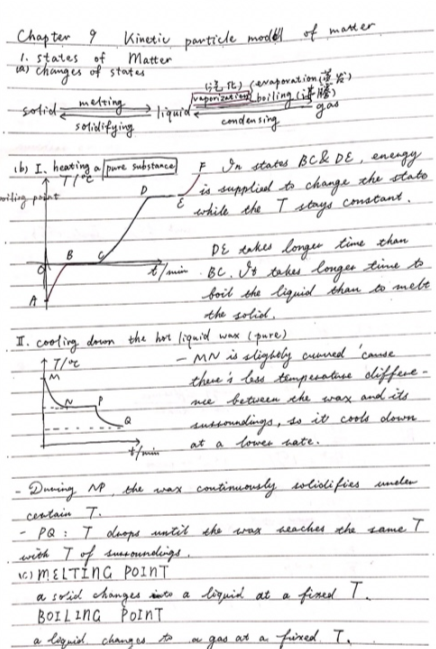 Chapter 9 Kinetic particle model of matter
1. states of Matter
(a) changes of states
(汽化) (evaporation(蒸发)
melting vaporization boiling (沸腾)
solid liquid gas
solidifying condensing
(b) I. heating a pure substance
T/°C
boiling point
A B C D E F
O
t/min
In states BC & DE, energy
is supplied to change the state
while the T stays constant.
DE takes longer time than
BC. It takes longer time to
boil the liquid than to melt
the solid.
II. cooling down the hot liquid wax (pure)
T/°C
M
N P
Q
t/min
- MN is slightly curved 'cause
there's less temperature differe-
nce between the wax and its
surroundings, so it cools down
at a lower rate.
- During NP the wax continuously solidifies under
certain T.
- PQ: T drops until the wax reaches the same T
with T of surroundings.
(c) MELTING POINT
a solid changes into a liquid at a fixed T.
BOILING POINT
a liquid changes to a gas at a fixed T.